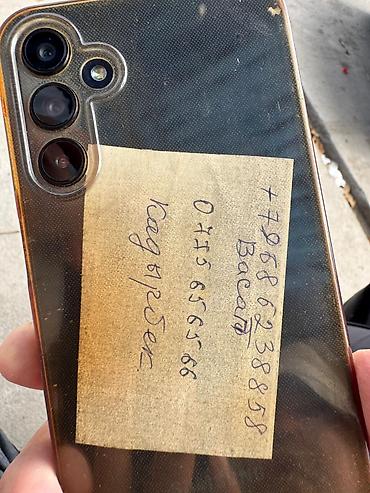 +79586238858
Васап
0755 65 65 66
Кадырбек